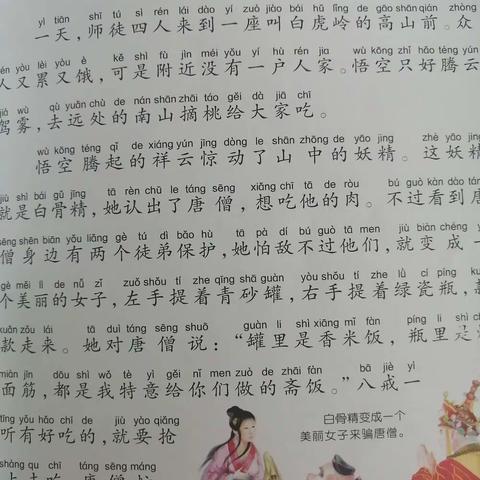 yì tiān shī tú sì rén lái dào yí zuò jiào bái hǔ lǐng de gāo shān qián zhòng
一天，师徒四人来到一座叫白虎岭的高山前。众
rén yòu lèi yòu è kě shì fù jìn méi yǒu yí hù rén jia wù kōng zhǐ hǎo téng yún
人又累又饿，可是附近没有一户人家。悟空只好腾云
jià wù qù yuǎn chù de nán shān zhāi táo gěi dà jiā chī
驾雾，去远处的南山摘桃给大家吃。
wù kōng téng qǐ de xiáng yún jīng dòng le shān zhōng de yāo jing zhè yāo jing
悟空腾起的祥云惊动了山中的妖精。这妖精
jiù shì bái gǔ jīng tā rèn chū le táng sēng xiǎng chī tā de ròu bú guò kàn dào táng
就是白骨精，她认出了唐僧，想吃他的肉。不过看到唐
sēng shēn biān yǒu liǎng gè tú dì bǎo hù tā pà dí bú guò tā men jiù biàn chéng yí
僧身边有两个徒弟保护，她怕敌不过他们，就变成一
gè měi lì de nǚ zǐ zuǒ shǒu tí zhe qīng shā guàn yòu shǒu tí zhe lǜ cí píng kuǎn
个美丽的女子，左手提着青砂罐，右手提着绿瓷瓶，款
kuǎn zǒu lái tā duì táng sēng shuō guàn li shì xiāng mǐ fàn píng li shì
款走来。她对唐僧说：“罐里是香米饭，瓶里是
miàn jīn dōu shì wǒ tè yì gěi nǐ men zuò de zhāi fàn bā jiè yì
面筋，都是我特意给你们做的斋饭。”八戒一
tīng yǒu hǎo chī de jiù yào qiǎng
听有好吃的，就要抢
shàng qu chī táng sēng máng
白骨精变成一个
美丽女子来骗唐僧。